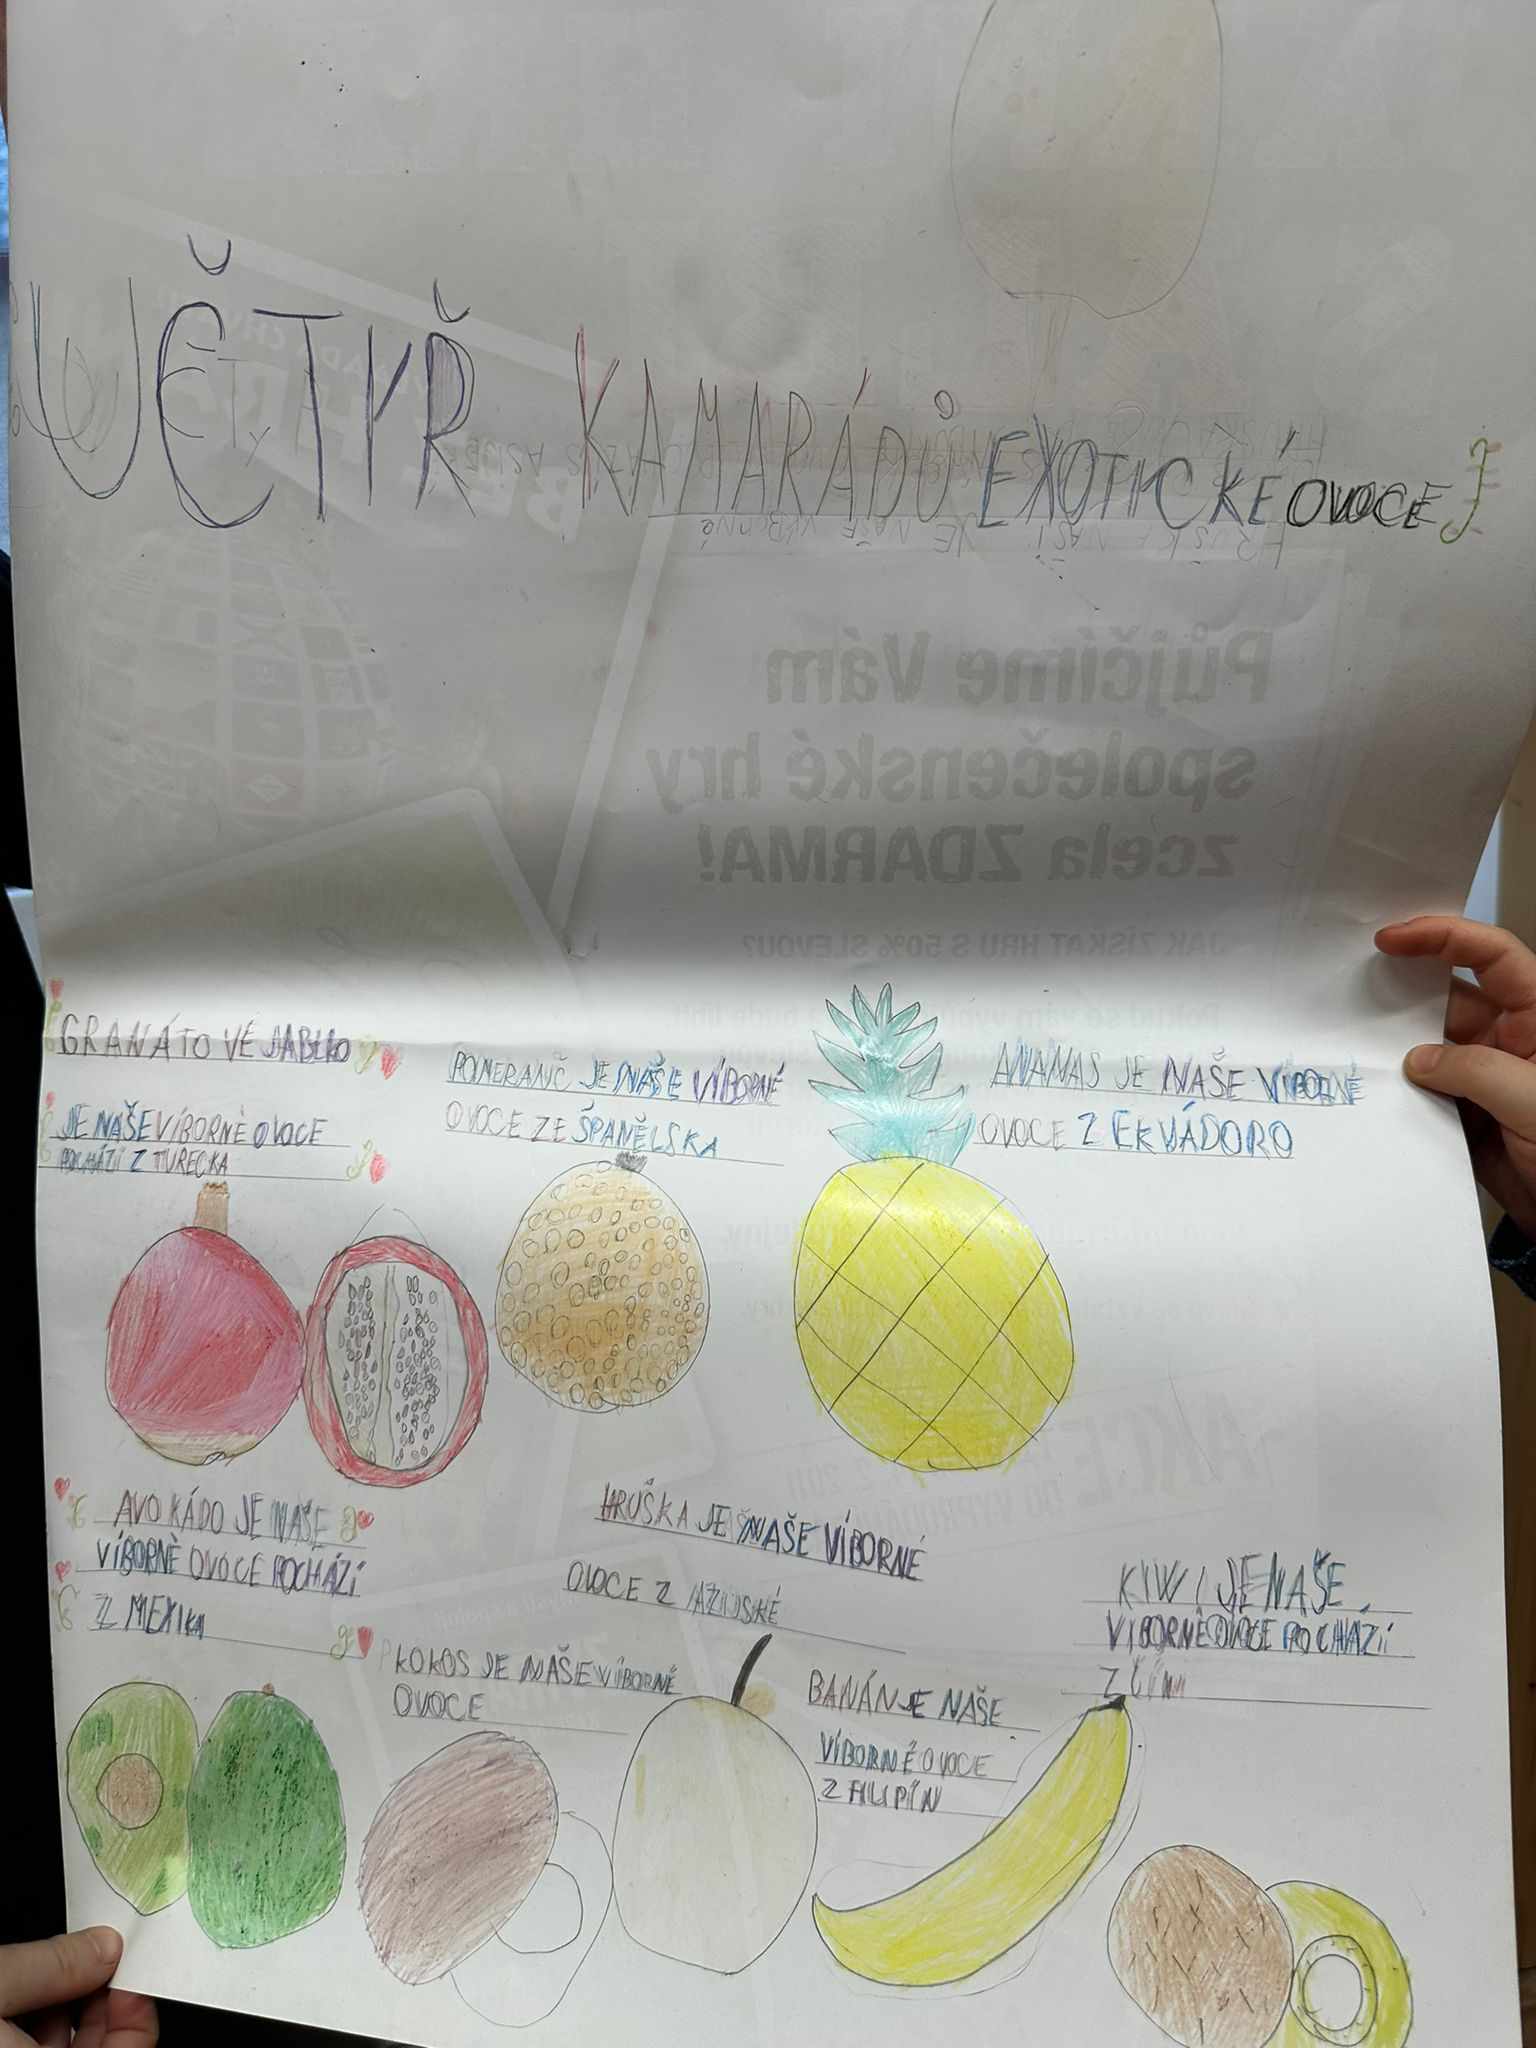 UĚTYŘ KAMARÁDŮ EXOTICKÉ OVOCE
GRANÁTOVÉ JABLKO
JE NAŠE VÍBORNÉ OVOCE
POCHÁZÍ Z TURECKA
POMERANČ JE NAŠE VÍBORNÉ
OVOCE ZE ŠPANĚLSKA
ANANAS JE NAŠE VÍBORNÉ
OVOCE Z EKVÁDORO
AVOKÁDO JE NAŠE
VÍBORNÉ OVOCE POCHÁZÍ
Z MEXIKA
HRUŠKA JE NAŠE VÍBORNÉ
OVOCE Z
KIWI JE NAŠE
VÍBORNÉ OVOCE POCHÁZÍ
Z ČÍNI
KOKOS JE NAŠE VÍBORNÉ
OVOCE
BANÁN JE NAŠE
VÍBORNÉ OVOCE
Z FILIPÍN
Půjčíme Vám
společenské hry
zcela ZDARMA!
JAK ZÍSKAT HRU S 50% SLEVOU?